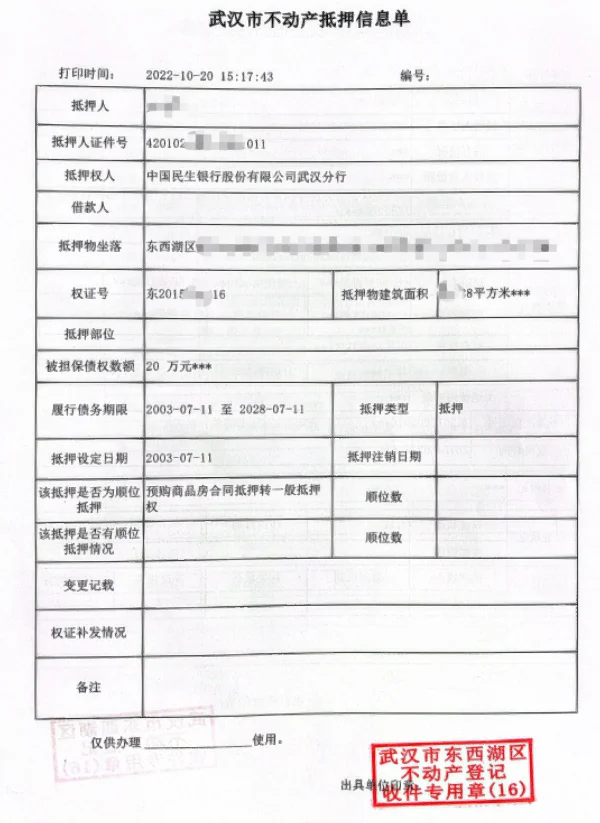 武汉市不动产抵押信息单
打印时间： 2022-10-20 15:17:43 编号：
抵押人
抵押人证件号 42010 011
抵押权人 中国民生银行股份有限公司武汉分行
借款人
抵押物坐落 东西湖区
权证号 东2015 16 抵押物建筑面积 8平方米***
抵押部位
被担保债权数额 20 万元***
履行债务期限 2003-07-11 至 2028-07-11 抵押类型 抵押
抵押设定日期 2003-07-11 抵押注销日期
该抵押是否为顺位 预购商品房合同抵押转一般抵押 顺位数
抵押 权
该抵押是否有顺位 顺位数
抵押情况
变更记载
权证补发情况
备注
仅供办理 使用。
武汉市东西湖区
不动产登记
收件专用章(16)
出具单位印章